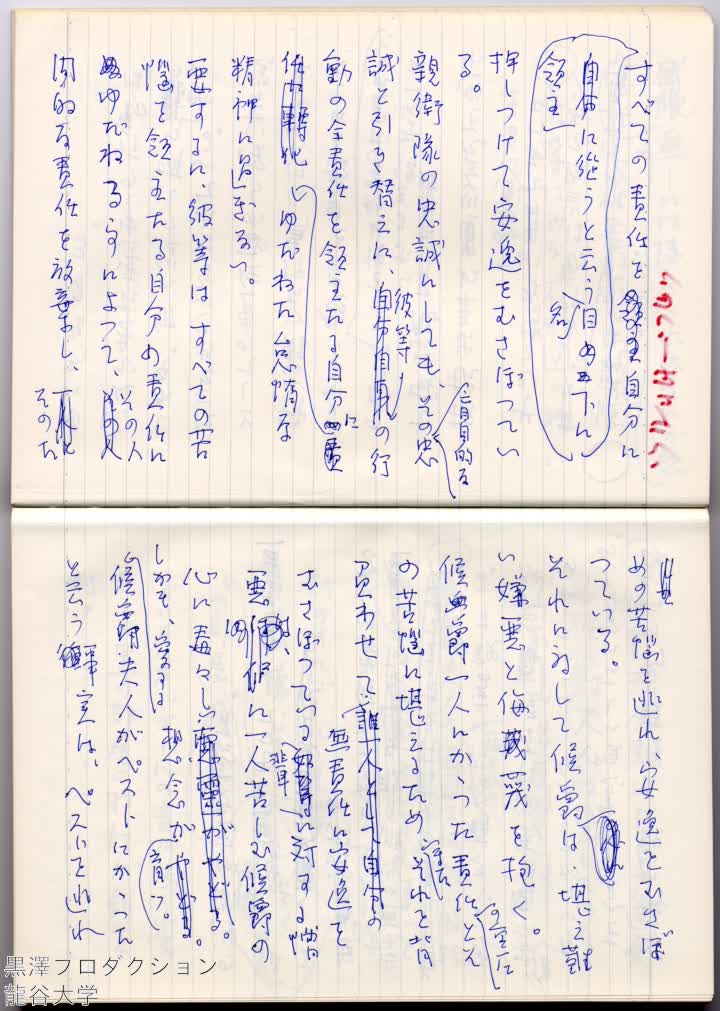 すべての責任を自分に
自由に従うと云う自の名の下に
領主
押しつけて安逸をむさぼってい
る。
親衛隊の忠誠にしても、その忠
盲目的な
誠と引き替えに、彼等の行
動の全責任を領主たる自分に
しゆだねた怠惰な
精神に過ぎない。
要するに、彼等はすべての苦
悩を領主たる自分の責任に
ゆだねる事によって、その人
間的な責任を放棄し、
そのた
めの苦悩を逃れ、安逸をむさぼ
っている。
それに対して候爵は、堪え難
い嫌悪と侮蔑を抱く。
候爵一人にかかった責任と
の苦悩に堪えるため、それを背
負わせて、誰一人として自分の
無責任に安逸を
むさぼっている輩に対する憎
悪に一人苦しむ候爵の
心に毒々しい想念が育つ。
しかも、愛する
候爵夫人がペストにかかった
と云う事実は、ペストを逃れ
黒澤プロダクション
龍谷大学